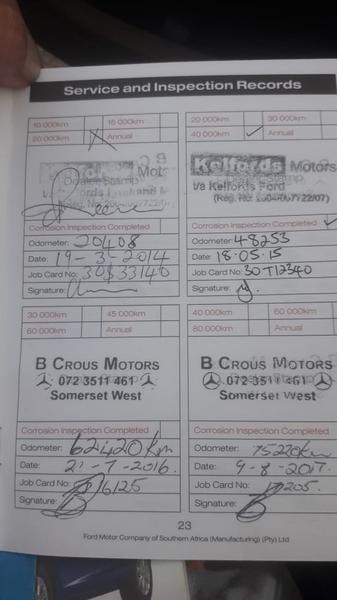 Service and Inspection Records
10 000km
15 000km
20 000km
Annual
Motors
Dealer Stamp
Corrosion Inspection Completed
Odometer: 20408
Date: 19-3-2014
Job Card No:
Signature:
20 000km
30 000km
40 000km
Annual
Kelfords Motors
t/a Kelfords Ford
Corrosion Inspection Completed
Odometer: 48253
Date: 18.05.15
Job Card No: 30T12340
Signature:
30 000km
45 000km
60 000km
Annual
B CROUS MOTORS
072 3511 461
Somerset West
Corrosion Inspection Completed
Odometer: 62420km
Date: 21-7-2016.
Job Card No:
Signature:
40 000km
60 000km
80 000km
Annual
B CROUS MOTORS
072 3511 461
Somerset West
Corrosion Inspection Completed
Odometer: 75220km
Date: 9-8-2017.
Job Card No:
Signature:
23
Ford Motor Company of Southern Africa (Manufacturing) (Pty) Ltd